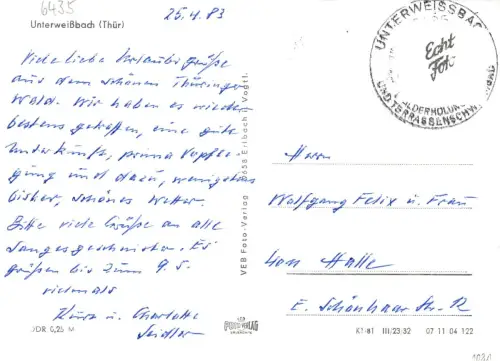 6435
25.4.83
Unterweißbach (Thür)
Viele liebe Urlaubsgrüße
aus dem schönen Thüringer
Wald. Wir haben es wieder
bestens getroffen, eine gute
Unterkunft, prima Verpfle-
gung und dazu, wenigstens
bisher, schönes Wetter.
Bitte viele Grüße an alle
Sangesgeschwister. Es
grüßen bis zum 9.5.
vielmals
Kurt u. Charlotte
Seidler
DDR 0,25 M
VEB Foto-Verlag 9658 Erlbach i. Vogtl.
UNTERWEISSBACH
Echt
Foto
UND TERRASSENSCHWIMMBAD
Herrn
Wolfgang Felix u. Frau
Halle
E. Schönhaar Str. 12
FOTO VERLAG
K1-81 III/23/32 07 11 04 122